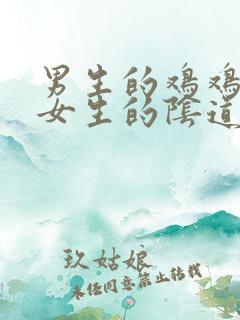 男生的鸡鸡
女生的陰道
玖姑娘
未经同意禁止转载